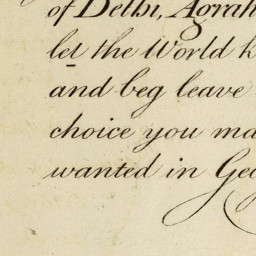 of Delhi, Agrah
let the World k
and beg leave
choice you ma
wanted in Geo